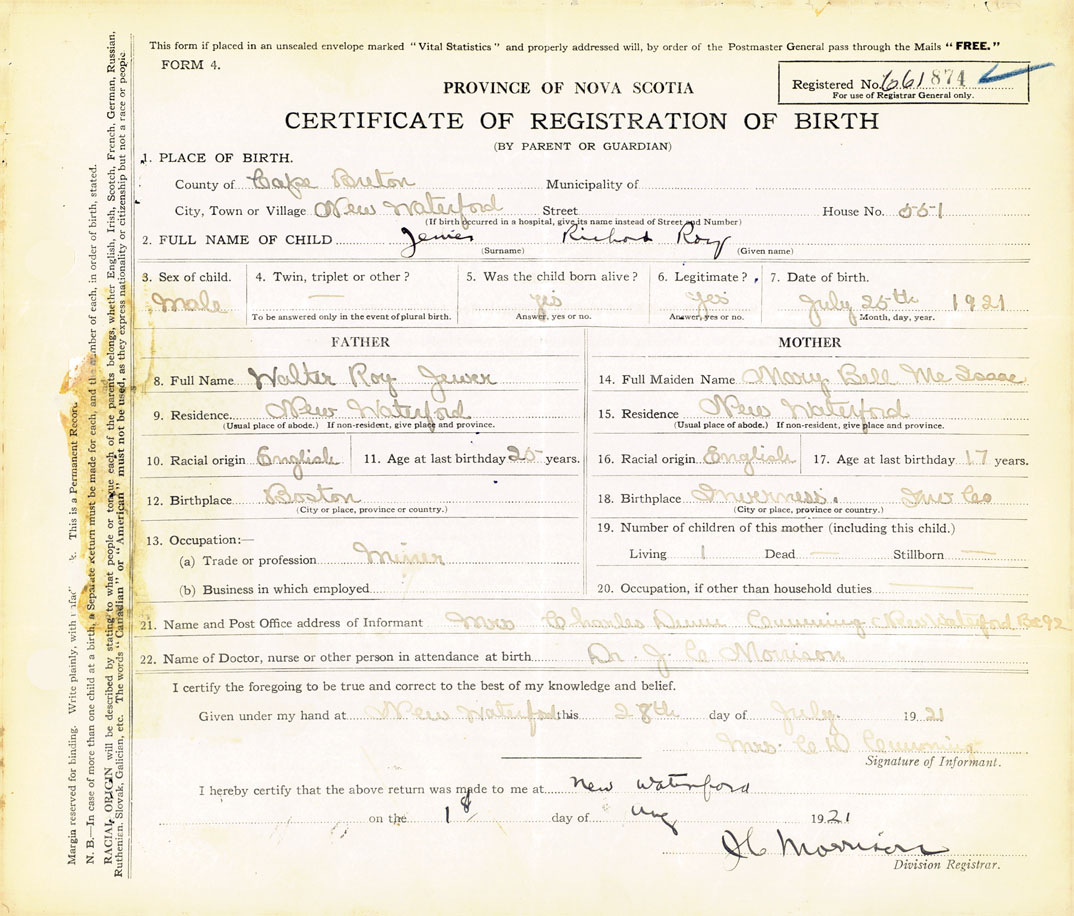 This form if placed in an unsealed envelope marked "Vital Statistics" and properly addressed will, by order of the Postmaster General pass through the Mails "FREE."
FORM 4.
Registered No. 661 874
For use of Registrar General only.
PROVINCE OF NOVA SCOTIA
CERTIFICATE OF REGISTRATION OF BIRTH
(BY PARENT OR GUARDIAN)
1. PLACE OF BIRTH.
County of Cape Breton Municipality of
City, Town or Village New Waterford Street House No. 551
(If birth occurred in a hospital, give its name instead of Street and Number)
2. FULL NAME OF CHILD Richard Roy
(Surname) (Given name)
3. Sex of child. 4. Twin, triplet or other? 5. Was the child born alive? 6. Legitimate? 7. Date of birth.
Male — yes Yes July 25th 1921
To be answered only in the event of plural birth. Answer, yes or no. Answer, yes or no. Month, day, year.
FATHER
8. Full Name Walter Roy Jewer
9. Residence New Waterford
(Usual place of abode.) If non-resident, give place and province.
10. Racial origin English 11. Age at last birthday 25 years.
12. Birthplace Boston
(City or place, province or country.)
13. Occupation:—
(a) Trade or profession Miner
(b) Business in which employed
MOTHER
14. Full Maiden Name Mary Bell Mc Isaac
15. Residence New Waterford
(Usual place of abode.) If non-resident, give place and province.
16. Racial origin English 17. Age at last birthday 17 years.
18. Birthplace Inverness Inv Co
(City or place, province or country.)
19. Number of children of this mother (including this child.)
Living 1 Dead — Stillborn —
20. Occupation, if other than household duties —
21. Name and Post Office address of Informant Mrs Charles Cumming New Waterford Box 92
22. Name of Doctor, nurse or other person in attendance at birth Dr. J C Morrison
I certify the foregoing to be true and correct to the best of my knowledge and belief.
Given under my hand at New Waterford this 28th day of July 1921
Mrs. C D Cumming
Signature of Informant.
I hereby certify that the above return was made to me at New Waterford
on the 1st day of Aug 1921
J C Morrison
Division Registrar.
Margin reserved for binding. Write plainly, with This is a Permanent Record
N. B.—In case of more than one child at a birth, a Separate Return must be made for each, and the number of each, in order of birth, stated.
RACIAL ORIGIN will be described by stating to what people or tongue each of the parents belongs, whether English, Irish, Scotch, French, German, Russian,
Ruthenian, Slovak, Galician, etc. The words "Canadian" or "American" must not be used, as they express nationality or citizenship but not a race or people